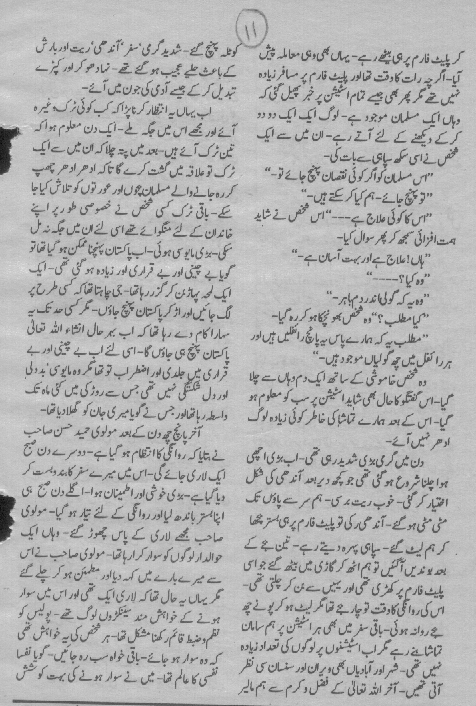 ۱۱
کر پلیٹ فارم پر ہی بیٹھے رہے۔ یہاں بھی وہی معاملہ پیش
آیا۔ اگرچہ رات کا وقت تھا اور پلیٹ فارم پر مسافر زیادہ
نہیں تھے مگر پھر بھی جیسے تمام اسٹیشن پر خبر پھیل گئی کہ
وہاں ایک مسلمان موجود ہے۔ لوگ ایک ایک دو دو
کر کے دیکھنے کے لئے آتے رہے۔ ان میں سے ایک
شخص نے اسی سکھ سپاہی سے بات کی۔
"اس مسلمان کو اگر کوئی نقصان پہنچ جائے تو۔"
"تو پہنچ جائے۔ ہم کیا کر سکتے ہیں۔"
"اس کا کوئی علاج ہے۔۔۔" اس شخص نے شاید
ہمت افزائی سمجھ کر پھر سوال کیا۔
"ہاں! علاج ہے اور بہت آسان ہے۔"
"وہ کیا؟۔۔۔۔"
"وہ یہ کہ گولی اندر دم باہر۔"
"کیا مطلب؟" وہ شخص بھونچکا ہو کر رہ گیا۔
"مطلب یہ کہ ہمارے پاس یہ پانچ رائفلیں ہیں اور
ہر رائفل میں چھ گولیاں موجود ہیں۔"
وہ شخص خاموشی کے ساتھ ایک دم وہاں سے چلا
گیا۔ اس گفتگو کا حال بھی شاید اسٹیشن پر سب کو معلوم ہو
گیا۔ اس کے بعد ہمارے تماشا کی خاطر کوئی زیادہ لوگ
ادھر نہیں آئے۔
دن میں گرمی بڑی شدید رہی تھی۔ اب بڑی اچھی
ہوا چلنا شروع ہو گئی تھی جو کچھ دیر بعد آندھی کی شکل
اختیار کر گئی۔ خوب ریت برسی۔ ہم سر سے پاؤں تک
مٹی مٹی ہو گئے۔ آندھی رکی تو پلیٹ فارم پر ہی بستر بچھا
کر ہم لیٹ گئے۔ سپاہی پہرہ دیتے رہے۔ تین بجے کے
بعد بوندیں آ گئیں تو ہم اٹھ کر گاڑی میں بیٹھ گئے جو اسی
پلیٹ فارم پر کھڑی تھی اور یہیں سے بن کر چلتی تھی۔
اس کی روانگی کا وقت تو چار بجے تھا مگر لیٹ ہو کر پونے چھ
بجے روانہ ہوئی۔ باقی سفر میں بھی ہر اسٹیشن پر ہم سامان
تماشا بنے رہے مگر اب اسٹیشنوں پر لوگوں کی تعداد زیادہ
نہیں تھی۔ شہر اور آبادیاں بھی ویران اور سنسان سی نظر
آتی تھیں۔ آخر اللہ تعالیٰ کے فضل و کرم سے ہم مالیر
کوٹلہ پہنچ گئے۔ شدید گرمی' سفر' آندھی' ریت اور بارش
کے باعث حلیے عجیب ہو گئے تھے۔ نہا دھو کر اور کپڑے
تبدیل کر کے جیسے آدمی کی جون میں آئے۔
اب یہاں یہ انتظار کرنا پڑا کہ کب کوئی ٹرک وغیرہ
آئے اور مجھے اس میں جگہ ملے۔ ایک دن معلوم ہوا کہ
تین ٹرک آئے ہیں۔ بعد میں پتہ چلا کہ ان میں سے ایک
ٹرک تو علاقہ میں گشت کرے گا تاکہ ادھر ادھر چھپ
کر رہ جانے والے مسلمان بچوں اور عورتوں کو تلاش کیا جا
سکے۔ باقی ٹرک کسی شخص نے خصوصی طور پر اپنے
خاندان کے لئے منگوائے تھے اس لئے ان میں جگہ نہ مل
سکی۔ بڑی مایوسی ہوئی۔ اب پاکستان پہنچنا ممکن ہو گیا تھا تو
گویا بے چینی اور بے قراری اور زیادہ ہو گئی تھی۔ ایک
ایک لمحہ پہاڑ بن کر گزر رہا تھا۔ جی چاہتا تھا کہ کسی طرح پر
لگ جائیں اور اڑ کر پاکستان پہنچ جاؤں۔ مگر کسی حد تک یہ
سہارا کام دے رہا تھا کہ اب بہرحال انشاء اللہ تعالیٰ
پاکستان پہنچ ہی جاؤں گا۔ اسی لئے اب بے چینی اور بے
قراری میں جلدی اور اضطراب تو تھا مگر وہ مایوسی' بد دلی
اور دل شکستگی نہیں تھی جس سے روڑکی میں کئی ماہ تک
واسطہ رہا تھا اور جس نے گویا میری جان کو گھلا دیا تھا۔
آخر پانچ چھ دن کے بعد مولوی حمید حسن صاحب
نے بتایا کہ روانگی کا انتظام ہو گیا ہے۔ دوسرے دن صبح
ایک لاری جائے گی۔ اس میں میرے سفر کا بندوبست کر
دیا گیا ہے۔ بڑی خوشی اور اطمینان ہوا۔ اگلے دن صبح ہی
اپنا بستر باندھ لیا اور روانگی کے لئے تیار ہو گیا۔ مولوی
صاحب مجھے لاری کے پاس چھوڑ گئے۔ وہاں ایک
حوالدار لوگوں کو سوار کرا رہا تھا۔ مولوی صاحب نے اس
سے میرے بارے میں کہہ دیا اور مطمئن ہو کر چلے گئے
مگر یہاں یہ حال تھا کہ ایک لاری تھی اور اس میں سوار
ہونے کے خواہش مند سینکڑوں لوگ تھے۔ پولیس کو
نظم و ضبط قائم رکھنا مشکل تھا۔ ہر شخص کی یہ خواہش تھی
کہ وہ سوار ہو جائے۔ باقی خواہ سب رہ جائیں۔ گویا نفسا
نفسی کا عالم تھا۔ میں نے سوار ہونے کی بہت کوشش